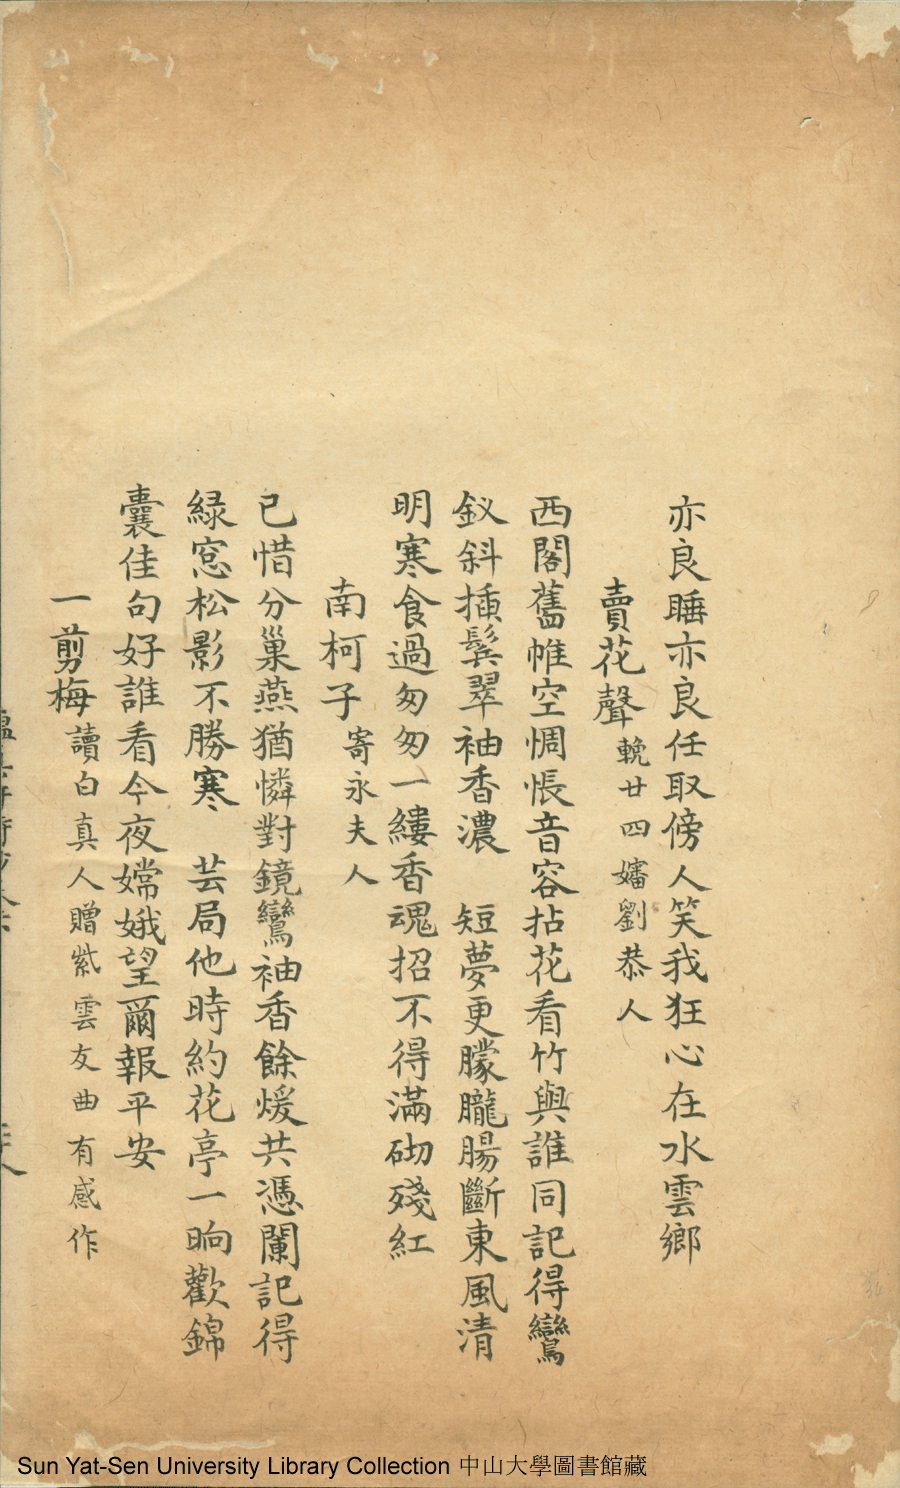 亦良睡亦良任取傍人笑我狂心在水雲鄉
賣花聲 輓廿四嬸劉恭人
西閣舊帷空惆悵音容拈花看竹與誰同記得鸞
釵斜插鬓翠袖香濃 短夢更朦朧腸斷東風清
明寒食過匆匆一縷香魂招不得滿砌殘紅
南柯子 寄永夫人
已惜分巢燕猶憐對鏡鸞袖香餘煖共憑闌記得
緑窓松影不勝寒 芸局他時約花亭一晌歡錦
囊佳句好誰看今夜嫦娥望爾報平安
一剪梅 讀白真人贈紫雲友曲有感作
Sun Yat-Sen University Library Collection 中山大學圖書館藏